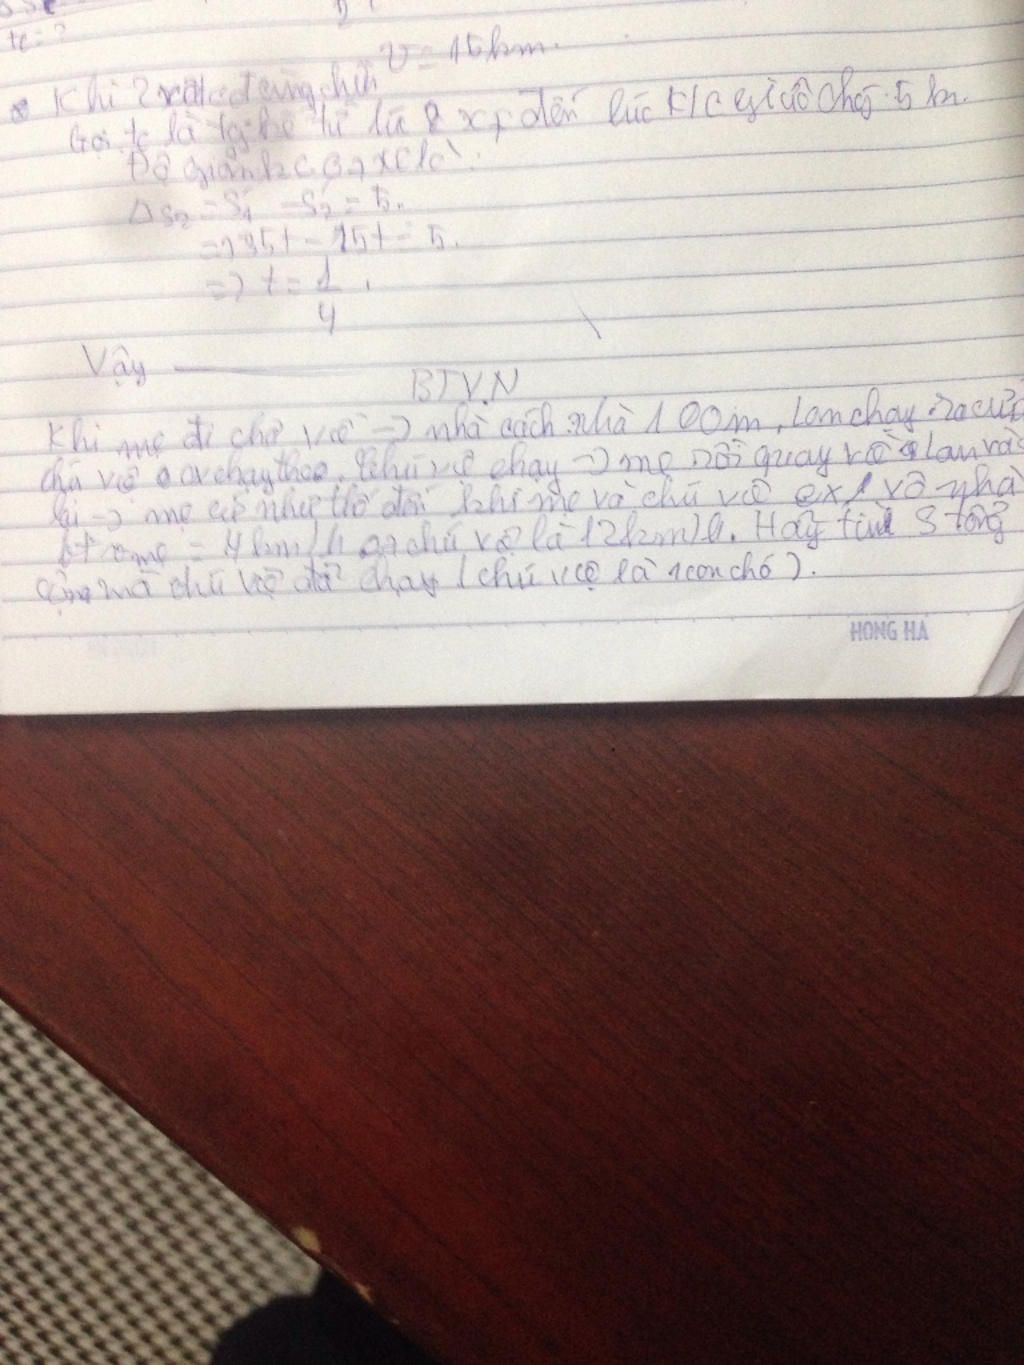 tc = ?
v = 15km.
Khi 2 xe cđ cùng chiều
Gọi tc là tg kể từ lúc 2 xe đến lúc K/C giữa chúng 5 km.
Độ giảm k c 2 xe là:
Δs2 = S1 - S2 = 5.
=> 35t - 15t = 5.
=> t = 1/4.
Vậy
BTVN
Khi mẹ đi chợ về -> nhà cách nhà 100m, Lan chạy ra cửa
chú vện chạy theo. Chú vện chạy -> mẹ rồi quay về Lan và
lại -> mẹ cứ như thế đến khi mẹ và chú vện về nhà
bt v mẹ = 4km/h chú vện là 12km/h. Hãy tính S tổng
cộng mà chú vện đã chạy (chú vện là 1 con chó).
HONG HA